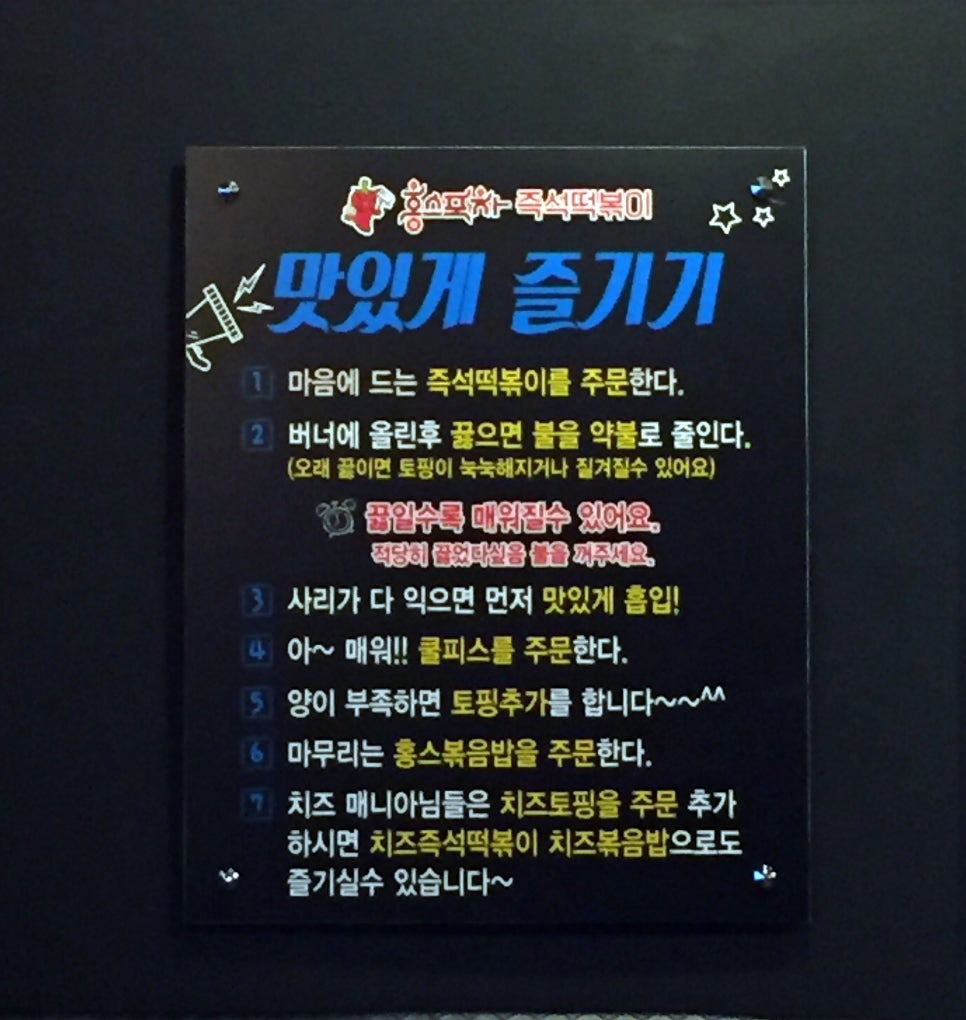 홍스포차 즉석떡볶이
맛있게 즐기기
1 마음에 드는 즉석떡볶이를 주문한다.
2 버너에 올린후 끓으면 불을 약불로 줄인다.
(오래 끓이면 토핑이 눅눅해지거나 질겨질수 있어요)
끓일수록 매워질수 있어요.
적당히 끓었다싶음 불을 꺼주세요.
3 사리가 다 익으면 먼저 맛있게 흡입!
4 아~ 매워!! 쿨피스를 주문한다.
5 양이 부족하면 토핑추가를 합니다~~^^
6 마무리는 홍스볶음밥을 주문한다.
7 치즈 매니아님들은 치즈토핑을 주문 추가
하시면 치즈즉석떡볶이 치즈볶음밥으로도
즐기실수 있습니다~